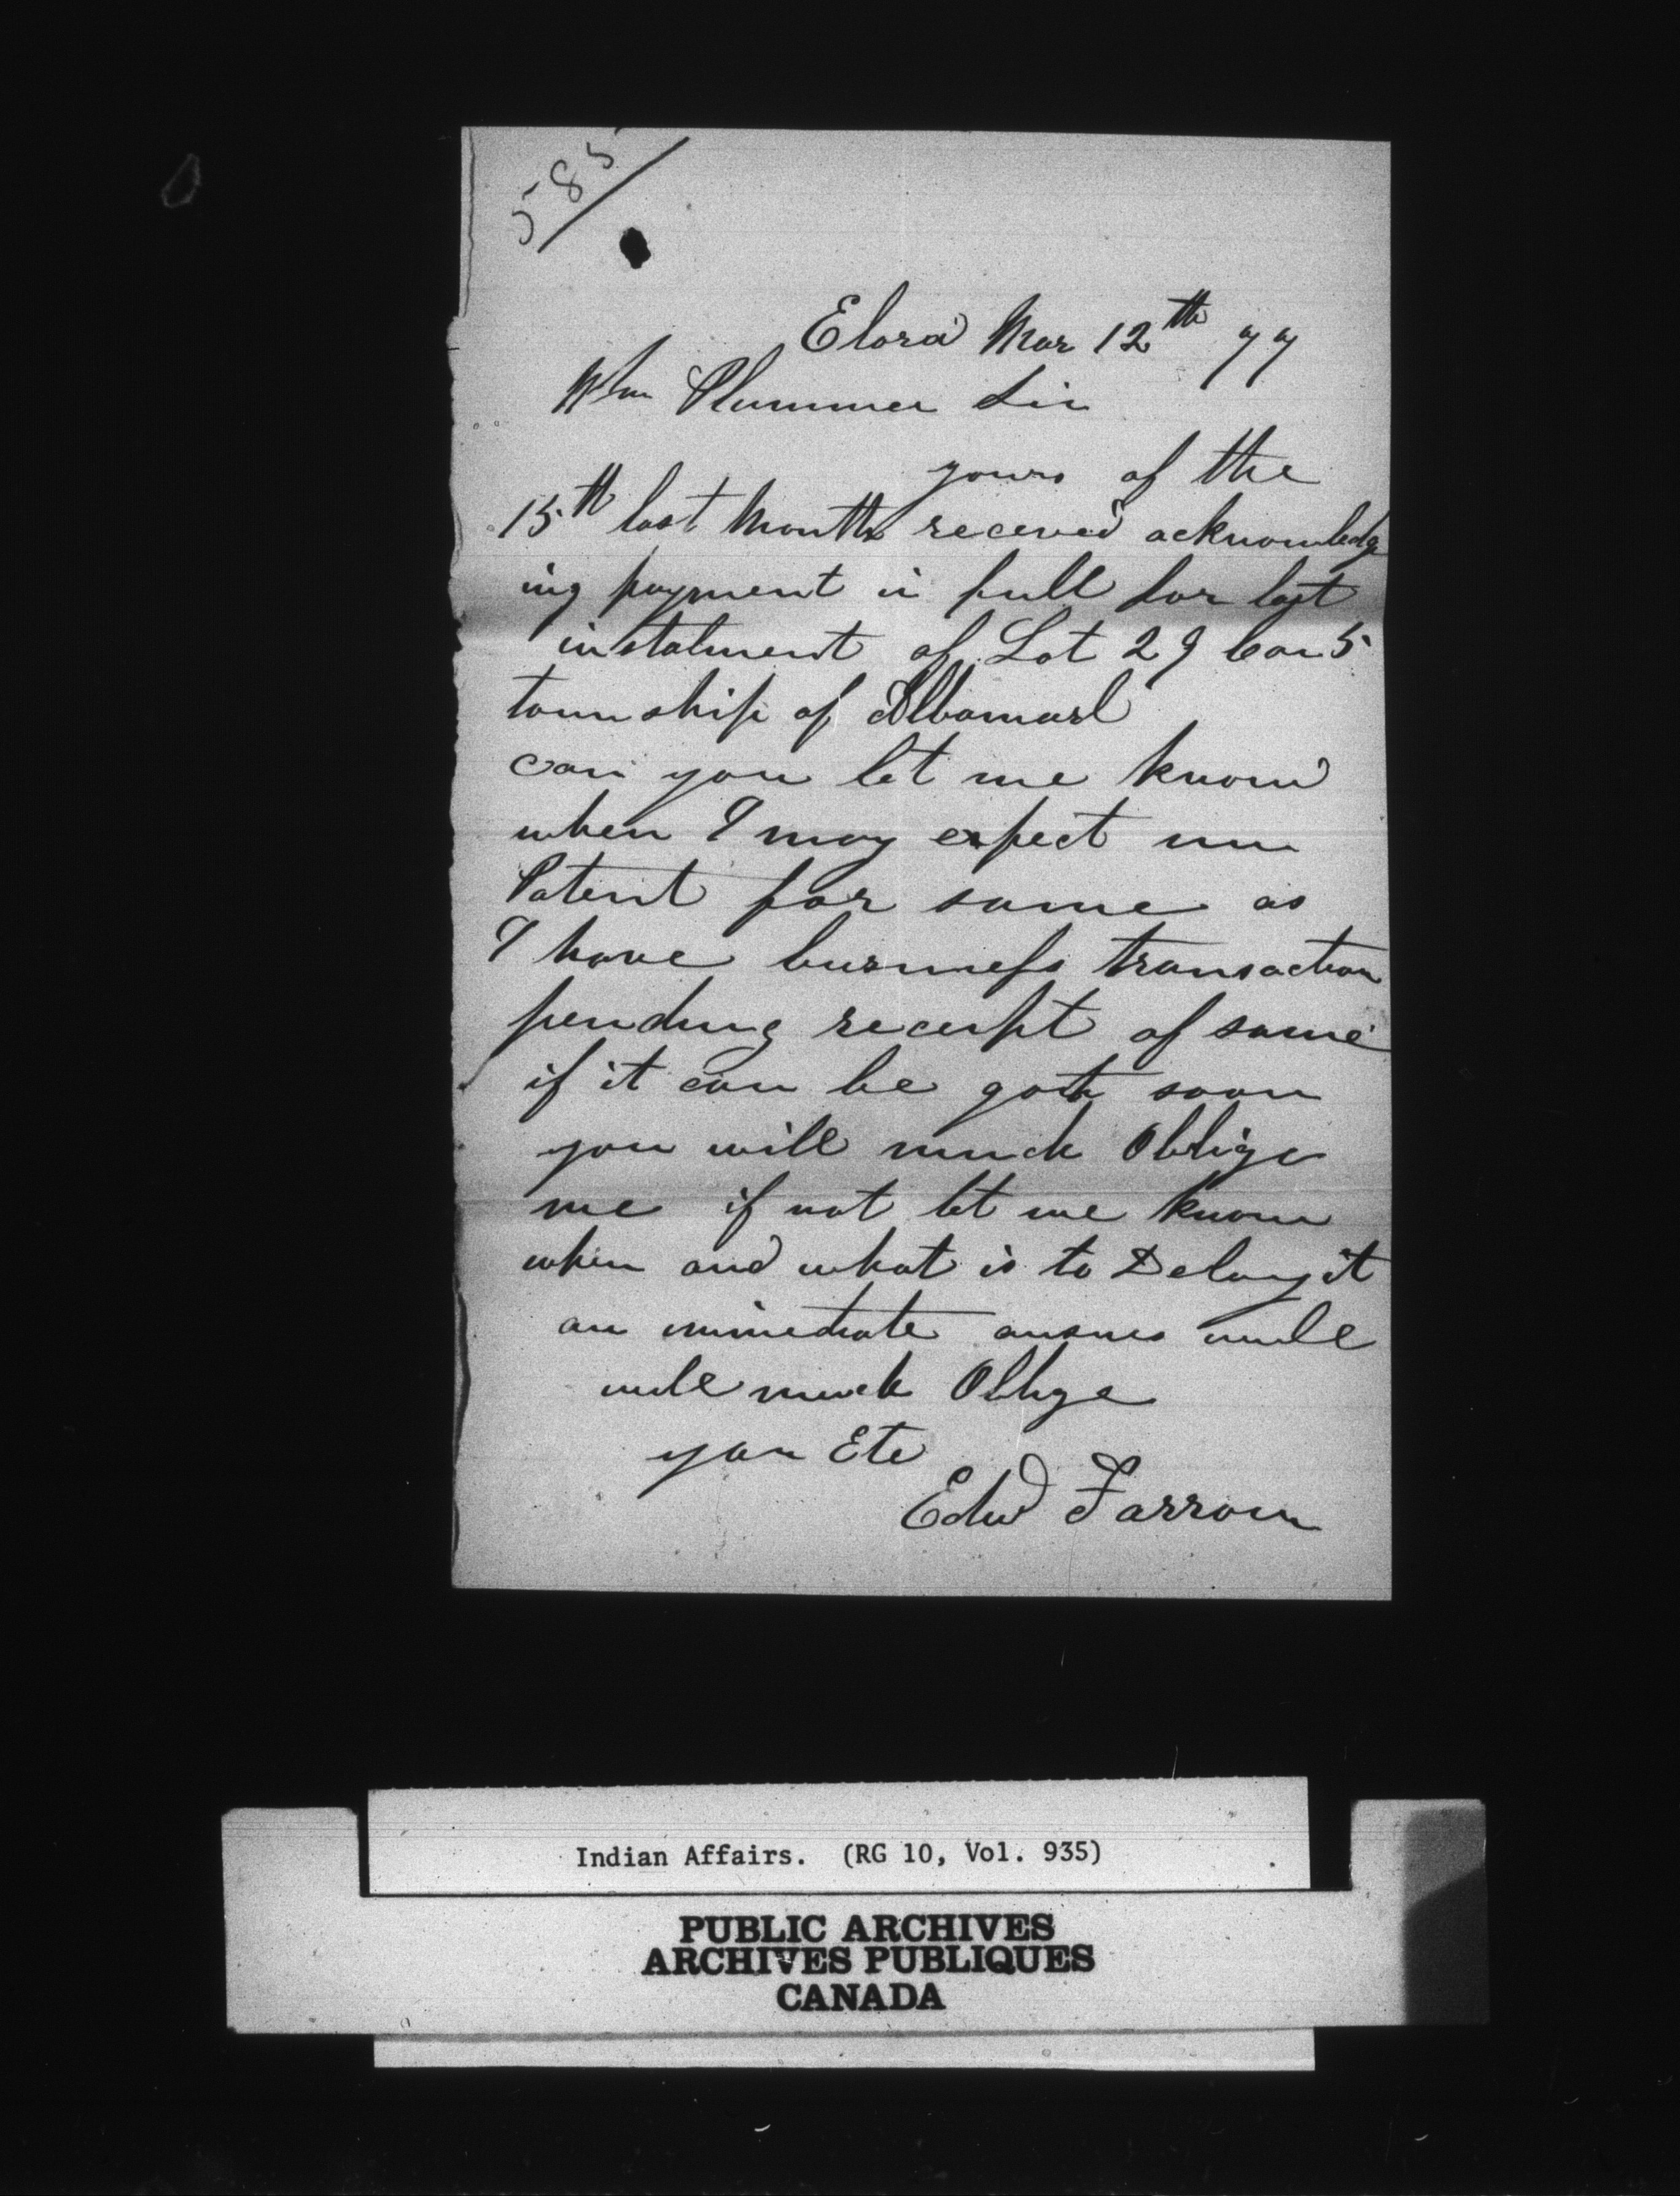 585
Elora Mar 12th 77
Wm Plummer Sir
yours of the
15th last Month received acknowledg
ing payment in full for last
instalment of Lot 29 Con 5
township of Albamarl
can you let me know
when I may expect my
Patent for same as
I have business transaction
pending receipt of same
if it can be got soon
you will much Oblige
me if not let me know
when and what is to Delay it
an immediate answer will
will much Oblige
your Etc
Edwd Farrow
Indian Affairs. (RG 10, Vol. 935)
PUBLIC ARCHIVES
ARCHIVES PUBLIQUES
CANADA